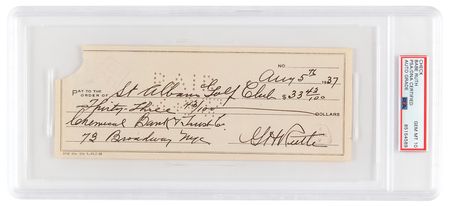 NO.
Aug 5th 1937
PAID
PAY TO THE
ORDER OF St Albans Golf Club $33 43/100
Thirty Three 43/100 DOLLARS
Chemical Bank & Trust Co
72 Broadway NYC
G H Ruth
CHECK
BABE RUTH
PSA/DNA CERTIFIED
AUTO GRADE
GEM MT 10